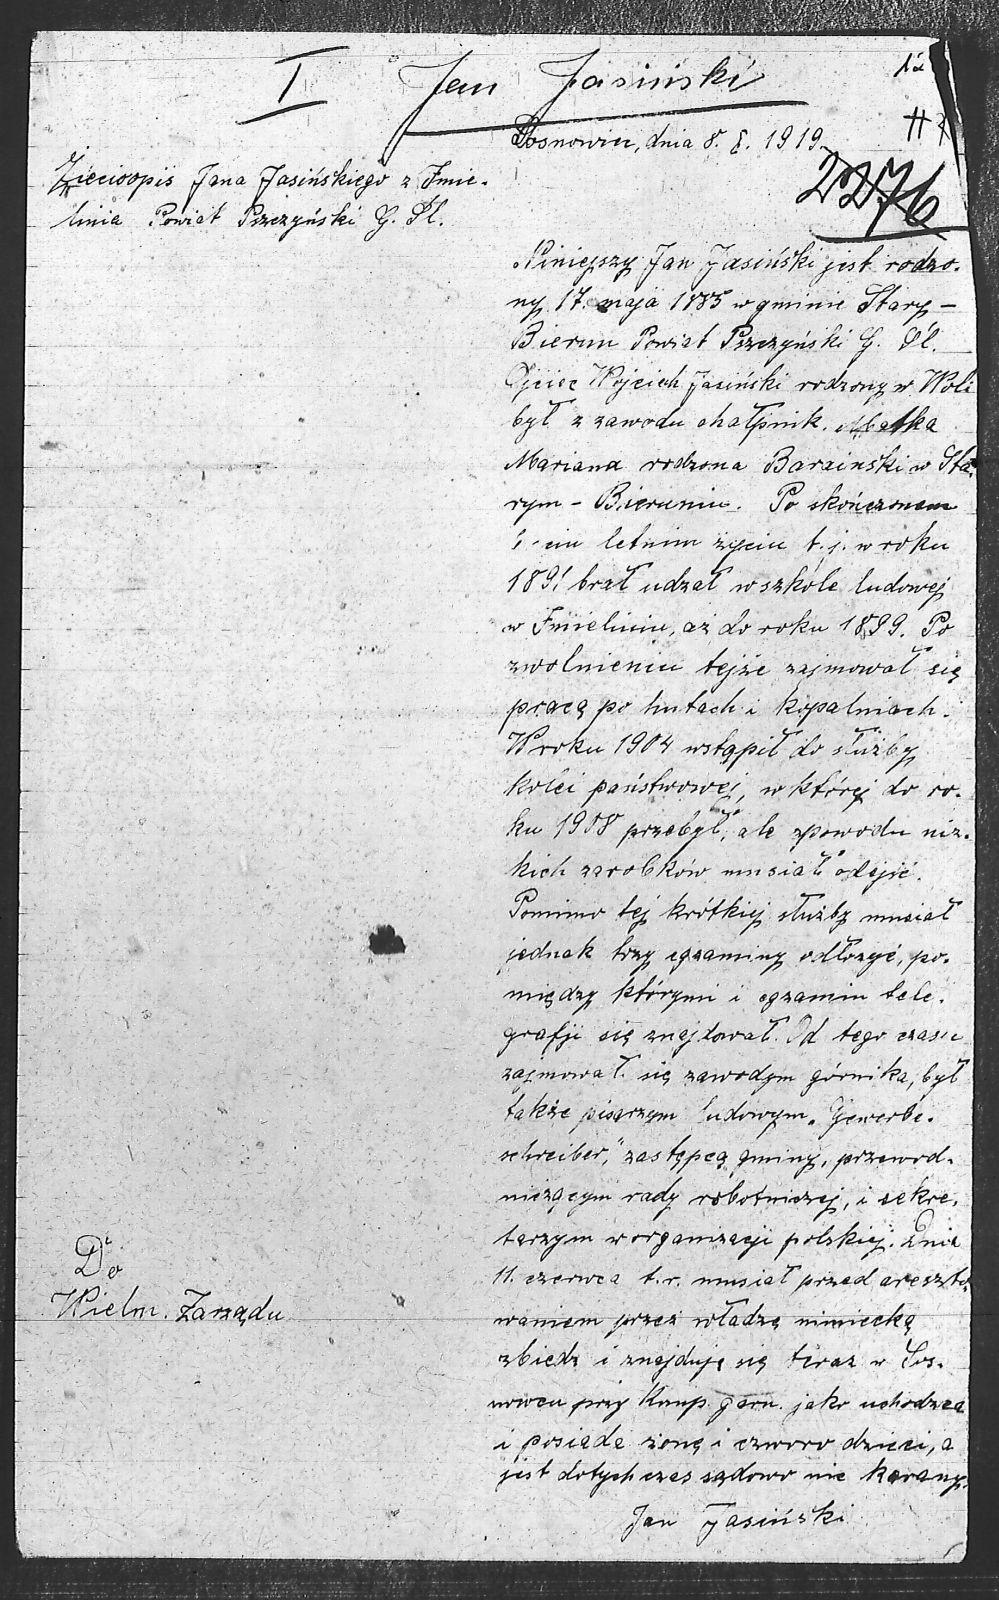 I Jan Jasiński
Sosnowiec, dnia 8. 8. 1919.
2276
Życioopis Jana Jasińskiego z Imie-
linia Powiat Pszczyński G. Śl.
Niniejszy Jan Jasiński jest rodzo-
ny 17. maja 1885 w gminie Stary-
Bierun Powiat Pszczyński G. Śl.
Ojciec Wojciech Jasiński rodzony w Woli
był z zawodu chałpnik. Matka
Mariana rodzona Barainski w Sta-
rym - Bieruniu. Po skończonem
6-ciu letnim życiu t.j. w roku
1891 brał udzał w szkole ludowej
w Imieliniu, aż do roku 1899. Po
zwolnieniu tejże zajmował się
pracą po hutach i kopalniach.
W roku 1904 wstąpił do służby
kolei państwowej, w której do ro-
ku 1908 przebył, ale zpowodu niz-
kich zarobków musiał odejść.
Pomimo tej krótkiej służby musiał
jednak trzy egzaminy odłożyć, po-
między którymi i egzamin tele-
grafji się znajdował. Od tego czasu
zajmował się zawodym górnika, był
także pisarzym ludowym „Gewerbe-
schreiber," zastępcą gminy, przewod-
niczącym rady robotniczej, i sekre-
tarzym w organizacji polskiej. Dnia
11. czerwca t.r. musiał przed areszto-
waniem przez władzę nimiecką
zbiedz i znajduję się teraz w Sos-
nowcu przy Komp. garn. jako uchodzca
i posiada żonę i czworo dzieci, a
jest dotychczas sądowo nie karany.
Jan Jasiński
Do
Wielm. Zarządu